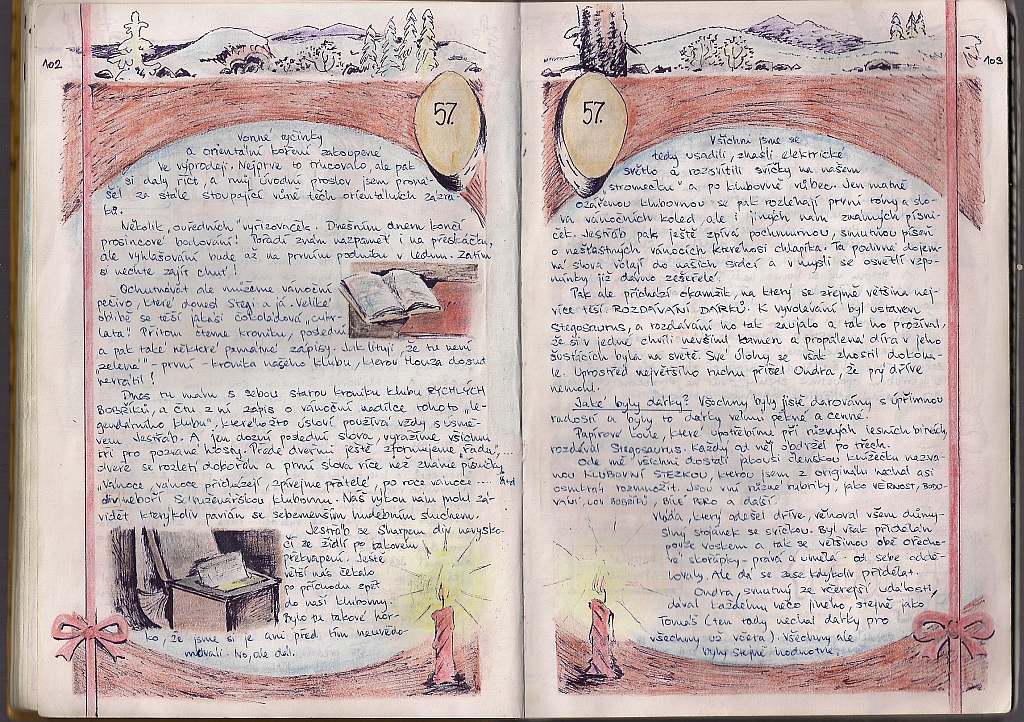 102
57.
Vonné tyčinky
a orientální koření zakoupené
ve výprodeji. Nejprve to trucovalo, ale pak
si daly říct, a můj úvodní proslov jsem prona-
šel za stále stoupající vůně těch orientálních zázra-
ků.
Několik „ouředních" vyřizovaček. Dnešním dnem končí
prosincové bodování! Pořadí znám nazpaměť i na přeskáčku,
ale vyhlašování bude až na prvním podniku v lednu. Zatím
si nechte zajít chuť!
Ochutnávat ale můžeme vánoční
pečivo, které donesl Stegi a já. Veliké
oblibě se těší jakási čokoládová „cukr-
láta". Přitom čteme kroniku, poslední
a pak také některé památné zápisy. Jak lituji, že tu není
„zelená" - první - kronika našeho klubu, kterou Houza dosud
nevrátil!
Dnes tu mám s sebou starou kroniku klubu RYCHLÝCH
BOBŘÍKŮ, a čtu z ní zápis o vánoční nadílce tohoto „le-
gendárního klubu", kteréhožto úsloví používá vždy s úsmě-
vem Jestřáb. A jen dozní poslední slova, vyrazíme všichni
tři pro pozvané hosty. Přede dveřmi ještě zformujeme „řadu",...
dveře se rozletí dokořán a první slova více než známé písničky
„Vánoce, vánoce přicházejí, zpívejme přátelé, po roce vánoce ....
div neboří Setuzenářskou klubovnu. Náš výkon nám mohl zá-
vidět kterýkoliv pavián se sebemenším hudebním sluchem.
Jestřáb se Sharpem div nevysko-
čí ze židlí po takovém
překvapení. Ještě
větší nás čekalo
po příchodu zpět
do naší klubovny.
Bylo tu takové hor-
ko, že jsme si je ani před tím neuvědo-
movali. No, ale dál.
103
57.
Všichni jsme se
tedy usadili, zhasli elektrické
světlo a rozsvítili svíčky na našem
„stromečku" a po klubovně vůbec. Jen matně
ozářenou klubovnou se pak rozléhají první tóny a slo-
va vánočních koled, ale i jiných nám známých písni-
ček. Jestřáb pak ještě zpívá pochmurnou, smutnou píseň
o nešťastných vánocích kteréhosi chlapíka. Ta podivně dojem-
ná slova volají do našich srdcí a v mysli se osvětlí vzpo-
mínky již dávno zešeřelé.
Pak ale přichází okamžik, na který se zřejmě většina nej-
více těší. ROZDÁVÁNÍ DÁRKŮ. K vyvolávání byl ustaven
Stegosaurus, a rozdávání ho tak zaujalo a tak ho prožíval,
že si v jedné chvíli nevšiml kamen a propálená díra v jeho
šusťácích byla na světě. Své úlohy se však zhostil dokona-
le. Uprostřed největšího ruchu přišel Ondra, že prý dříve
nemohl.
Jaké byly dárky? Všechny byly jistě darovány s upřímnou
radostí a byly to dárky velmi pěkné a cenné.
Papírové koule, které upotřebíme při různých lesních bitvách,
rozdával Stegosaurus. Každý od něj obdržel po třech.
Ode mě všichni dostali jakousi členskou knížečku nazva-
nou KLUBOVNÍ STEZKOU, kterou jsem z originálu nechal asi
osmkrát rozmnožit. Jsou v ní různé rubriky, jako VĚRNOST, BODO-
VÁNÍ, LOV BOBŘÍKŮ, BÍLÉ PERO a další.
Vláďa, který odešel dříve, věnoval všem důmy-
slný stojánek se svíčkou. Byl však přidělán
pouze voskem a tak se většinou obě ořecho-
vé skořápky - pravá a umělá - od sebe oddě-
lovaly. Ale dá se zase kdykoliv přidělat.
Ondra, smutný ze včerejší události,
dával každému něco jiného, stejně jako
Tomáš (ten tady nechal dárky pro
všechny už včera). Všechny ale
byly stejně hodnotné.